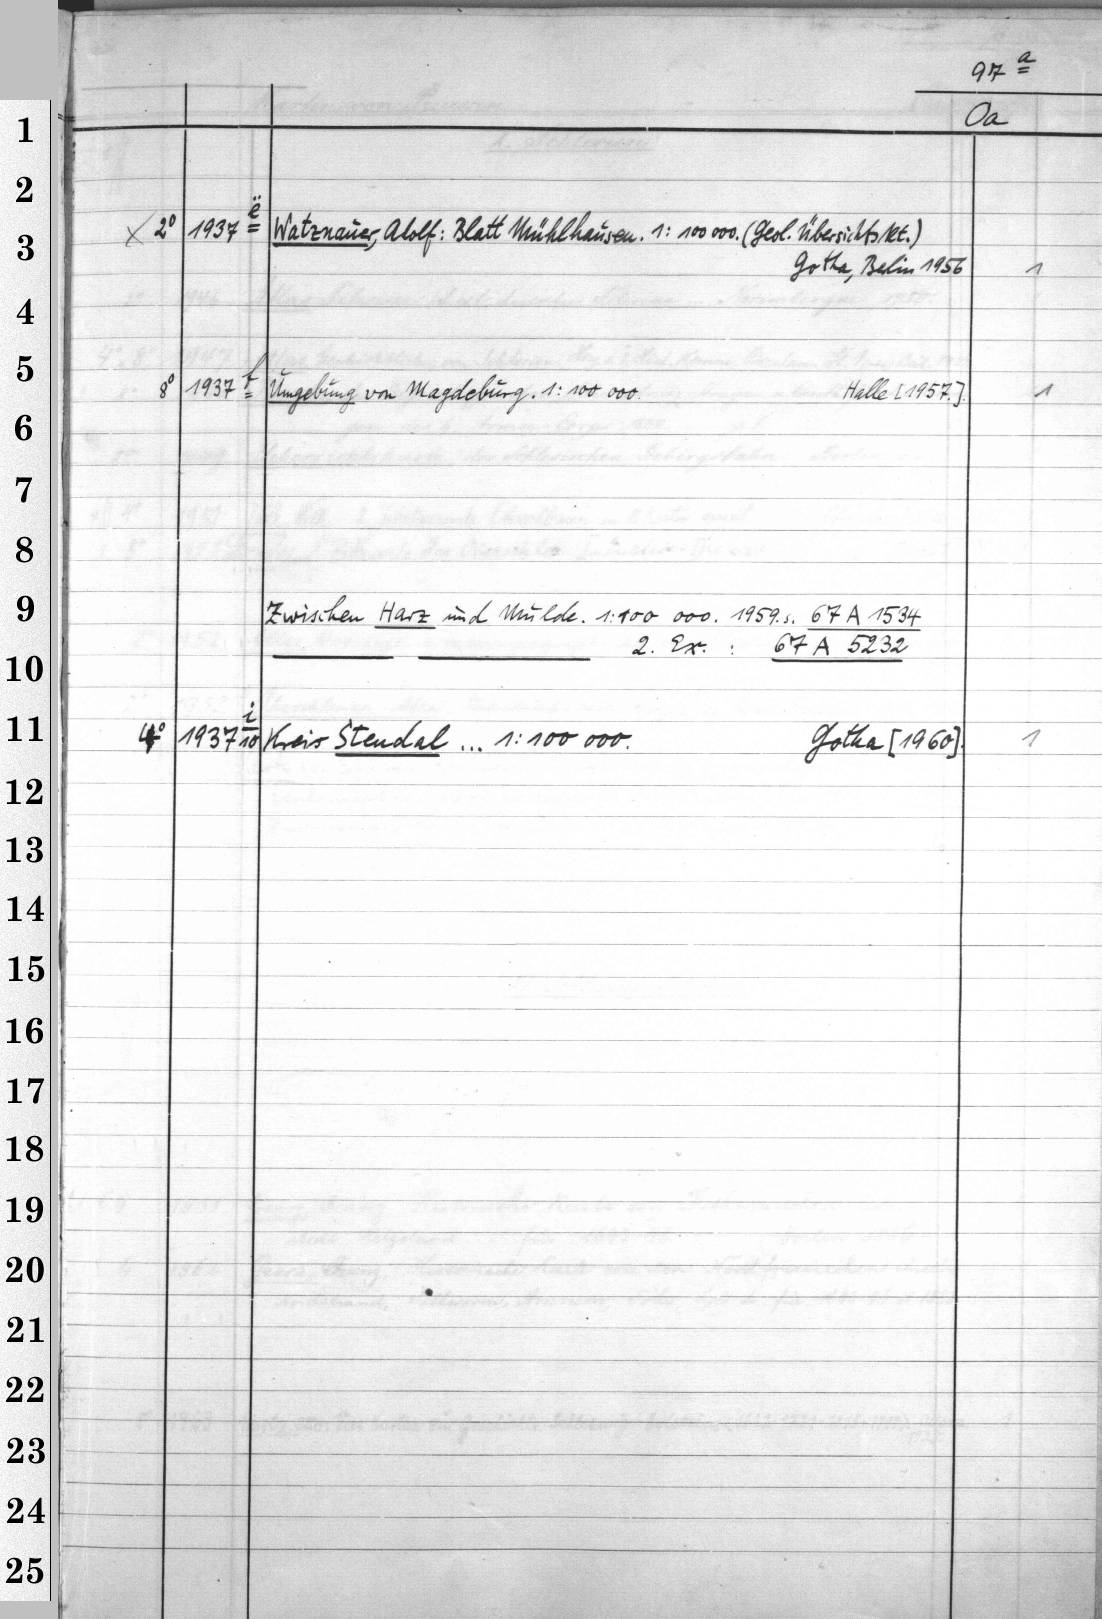 97 a
Oa
1
2
3 × 2° 1937 ë Watznauer, Adolf: Blatt Mühlhausen. 1: 100 000. (Geol. Übersichtskt.)
Gotha, Berlin 1956 1
4
5
8° 1937 f Umgebung von Magdeburg. 1: 100 000. Halle [1957.] 1
6
7
8
9 Zwischen Harz und Mulde. 1:100 000. 1959. s. 67 A 1534
2. Ex. : 67 A 5232
10
11 4° 1937 i/10 Kreis Stendal ... 1:100 000. Gotha [1960]. 1
12
13
14
15
16
17
18
19
20
21
22
23
24
25